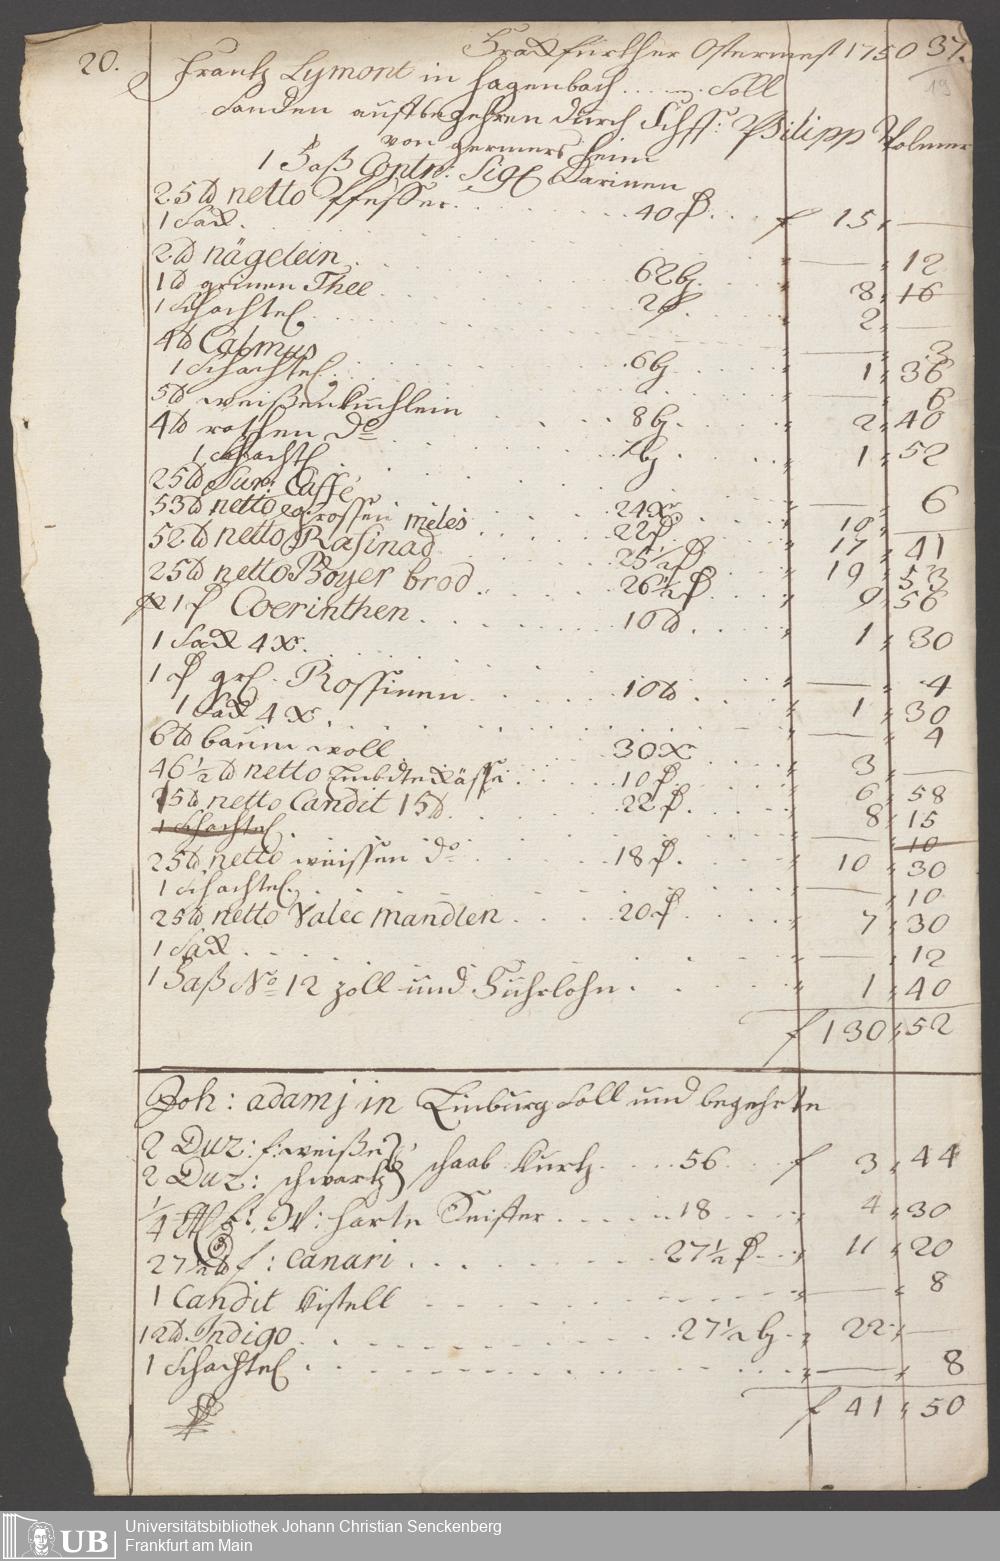 Franckfürther Ostermeß 1750 37.
19
20. Frantz Lymont in Hagenbach ..... Soll
Sanden auffbegehren durch Schff: Philipp Volmer
von Germersheim
1 Faß Contn: Sigl Darinnen
25 ℔ netto Pfeffer . . . . 40 f. . . f 15 " —
1 Sack . . . . " — " 12
2 ℔ nägelein . . . . 62 bz. " 8 " 16
1 ℔ grünen Thee . . . . 2 f " 2 " —
1 Schachtel . . . . " — " 3
4 ℔ Calmus . . . . 6 bz " 1 " 36
1 Schachtel . . . . " — " 6
5 ℔ weißenküchlein . . . . 8 bz. " 2 " 40
4 ℔ rothen do . . . . 7 bz " 1 " 52
1 Schachtl . . . . " — " 6
25 ℔ Sur: Caffe . . . . 24 x " 10 " —
53 ℔ netto grossen melis . . . . 22 f. " 17 " 41
52 ℔ netto Rafinad . . . . 25 1/2 f " 19 " 53
25 ℔ netto Royer brod . . . . 26 1/2 f " 9 " 56
1 f Coerinthen . . . . 10 ℔. " 1 " 30
1 Sack 4 x. " — " 4
1 f grl. Rossinen . . . . 10 ℔ " 1 " 30
1 Sack 4 x. " — " 4
6 ℔ baum woll . . . . 30 x " 3 " —
46 1/2 ℔ netto . . . . 10 f. " 6 " 58
25 ℔ netto Candit 15 ℔ . . . . 22 f. " 8 " 15
1 Schachtel . — " 10
25 ℔ netto weissen do . . . . 18 f. " 10 " 30
1 Schachtel . . . . " — " 10
25 ℔ netto Valec mandlen . . . . 20 f " 7 " 30
1 Sack . . . . " — " 12
1 Faß No 12 zoll und Fuhrlohn . . . . " 1 " 40
f 130 " 52
Joh: adamj in Limburg Soll und begehrte
2 Duz: f: weiße
2 Duz: schwartz schaab kurtz . . . . 56 . . f 3 " 44
1/4 W: harte . . . . 18 " 4 " 30
27 1/2 ℔ f: Canari . . . . 27 1/2 f . . " 11 " 20
1 Candit kistell . . . . " — " 8
12 ℔. Indigo . . . . 27 1/2 bz . . " 22 " —
1 Schachtel . . . . " — " 8
f 41 " 50
UB
Universitätsbibliothek Johann Christian Senckenberg
Frankfurt am Main